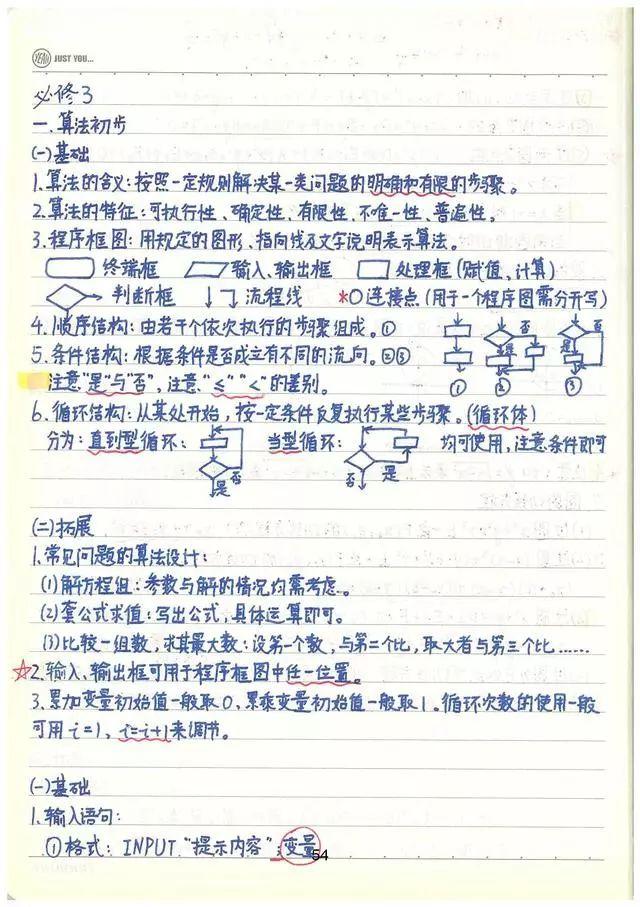 YEAH JUST YOU...
必修3
一.算法初步
(一)基础
1.算法的含义:按照一定规则解决某一类问题的明确和有限的步骤。
2.算法的特征:可执行性、确定性、有限性、不唯一性、普遍性。
3.程序框图:用规定的图形、指向线及文字说明表示算法。
终端框 输入、输出框 处理框(赋值、计算)
判断框 流程线 *○连接点(用于一个程序图需分开写)
4.顺序结构:由若干个依次执行的步骤组成。①
5.条件结构:根据条件是否成立有不同的流向。②③
注意"是"与"否",注意"≤""<"的差别。
是 否 是 否
① ② ③
6.循环结构:从某处开始,按一定条件反复执行某些步骤。(循环体)
分为:直到型循环: 否 是 当型循环: 是 否 均可使用,注意条件即可
(二)拓展
1.常见问题的算法设计:
(1)解方程组:参数与解的情况均需考虑。
(2)套公式求值:写出公式,具体运算即可。
(3)比较一组数,求其最大数:设第一个数,与第二个比,取大者与第三个比……
☆2.输入、输出框可用于程序框图中任一位置。
3.累加变量初始值一般取0,累乘变量初始值一般取1。循环次数的使用一般
可用i=1,i=i+1来调节。
(一)基础
1.输入语句:
①格式: INPUT "提示内容";变量
54